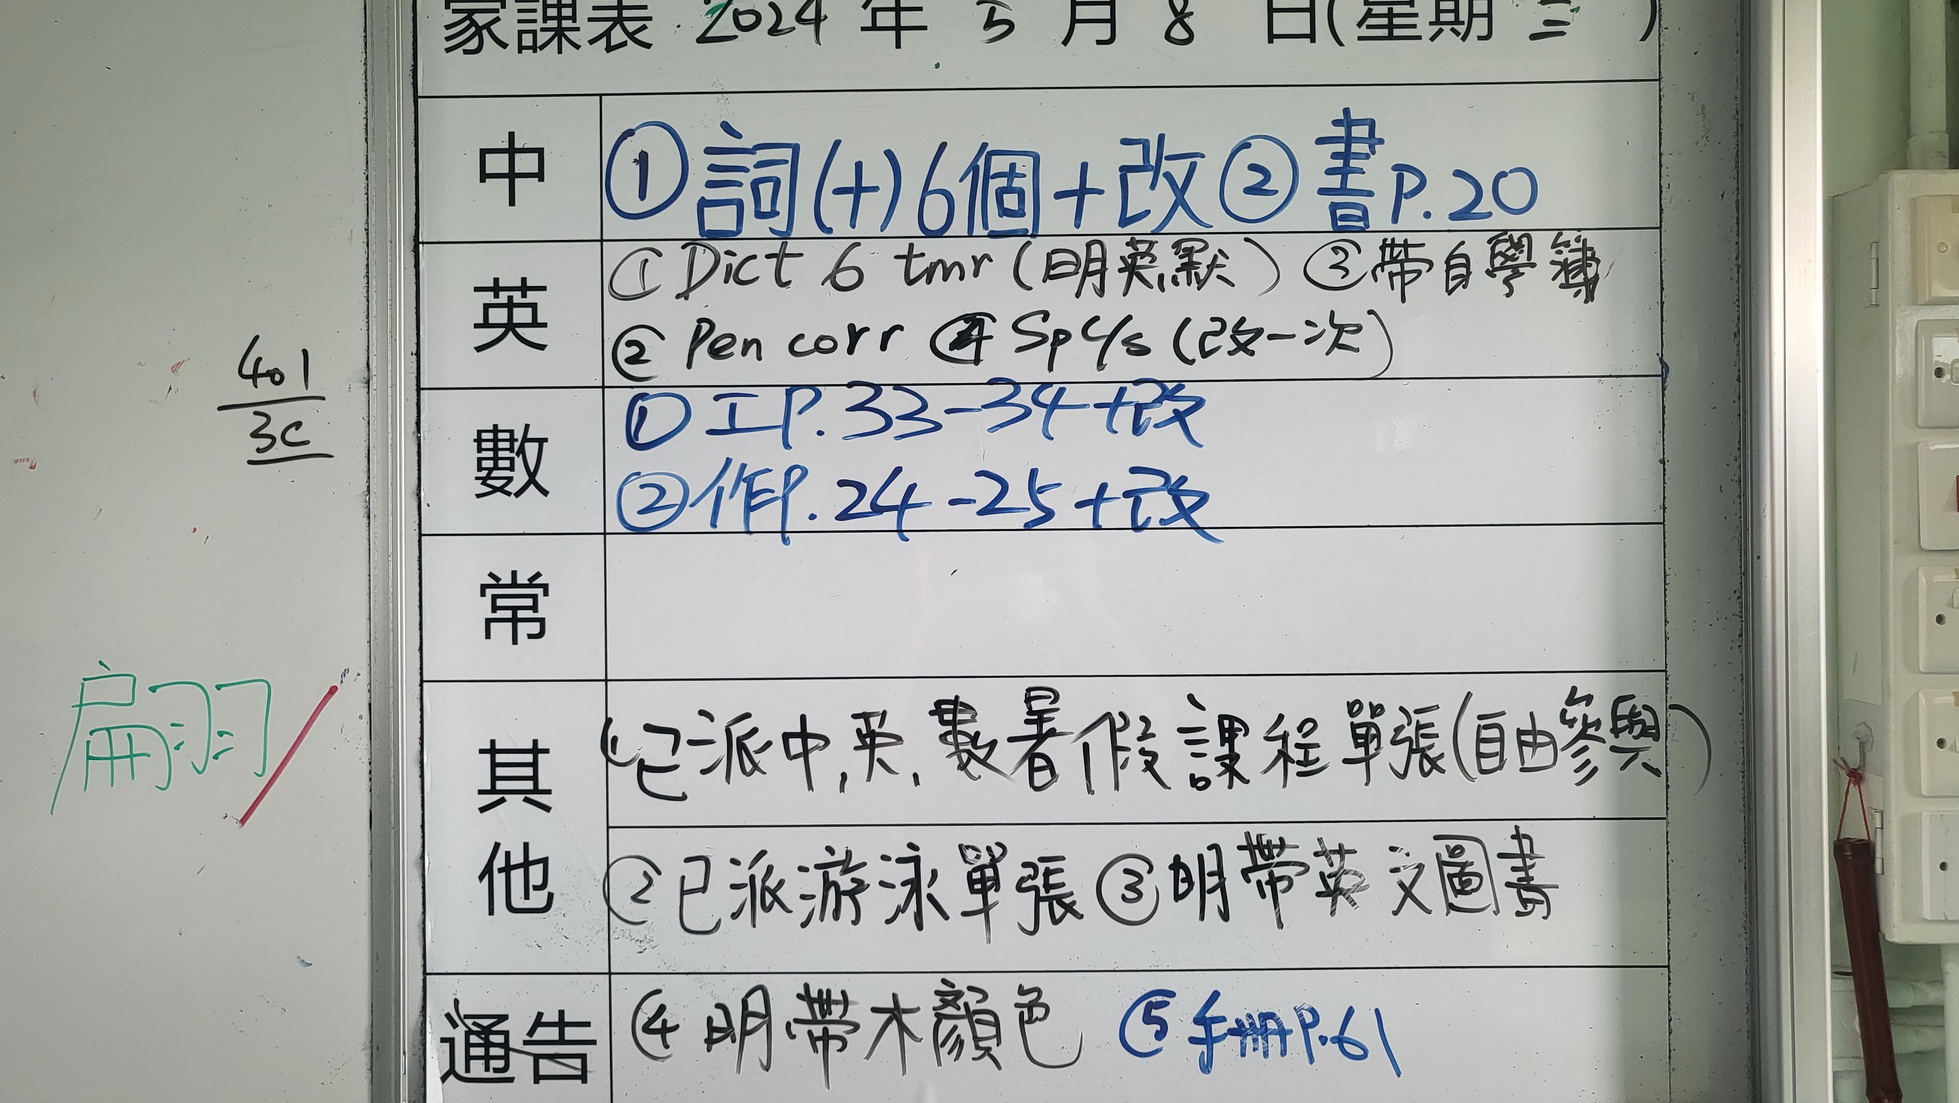 家課表 2024 年 5 月 8 日(星期 三 )
中 ①詞(十)6個+改②書P.20
英 ①Dict 6 tmr(明英默) ③帶自學簿
②Pen corr ④Sp c/s(改一次)
數 ①工P.33-34+改
②作P.24-25+改
常
其他 ①已派中,英,數暑假課程單張(自由參與)
②已派游泳單張③明帶英文圖書
通告 ④明帶木顏色 ⑤手冊P.61
401
3C
翩